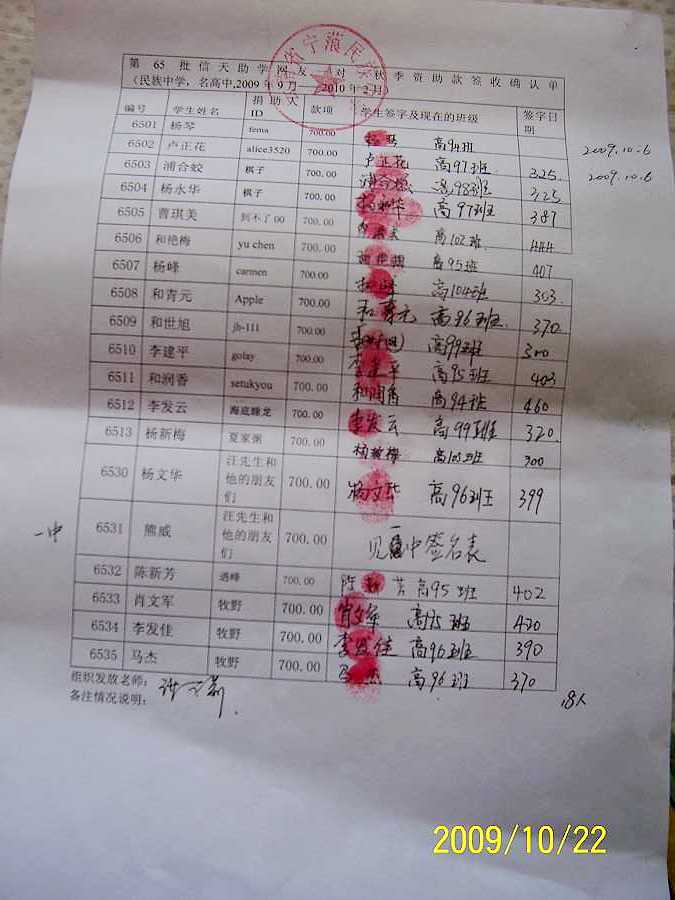 第 65 批信天助学网友一对一秋季资助款签收确认单
(民族中学，名高中,2009年9月 2010年2月)
编号 学生姓名 捐助人ID 款项 学生签字及现在的班级 签字日期
6501 杨琴 fema 700.00 高94班 2009.10.6
6502 卢正花 alice3520 700.00 卢正花 高97班 325 2009.10.6
6503 浦合姣 棋子 700.00 浦合姣 高98班 325
6504 杨永华 棋子 700.00 高97班 387
6505 曹琪美 到不了00 700.00 高102班 444
6506 和艳梅 yu chen 700.00 高95班 407
6507 杨峰 carmen 700.00 杨峰 高104班 303
6508 和青元 Apple 700.00 和青元 高96班 370
6509 和世旭 jh-111 700.00 高99班 300
6510 李建平 golay 700.00 李建平 高95班 403
6511 和润香 setukyou 700.00 和润香 高94班 460
6512 李发云 海底睡龙 700.00 李发云 高99班 320
6513 杨新梅 夏家粥 700.00 杨新梅 高103班 300
6530 杨文华 汪先生和他的朋友们 700.00 杨文华 高96班 399
一中 6531 熊威 汪先生和他的朋友们 700.00 见一中签名表
6532 陈新芳 遇峰 700.00 陈新芳 高95班 402
6533 肖文军 牧野 700.00 肖文军 高95班 420
6534 李发佳 牧野 700.00 李发佳 高96班 390
6535 马杰 牧野 700.00 马杰 高96班 370
组织发放老师：
备注情况说明： 18人
2009/10/22